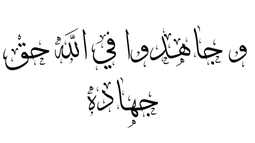 و جاهدوا في الله حق
جهاده